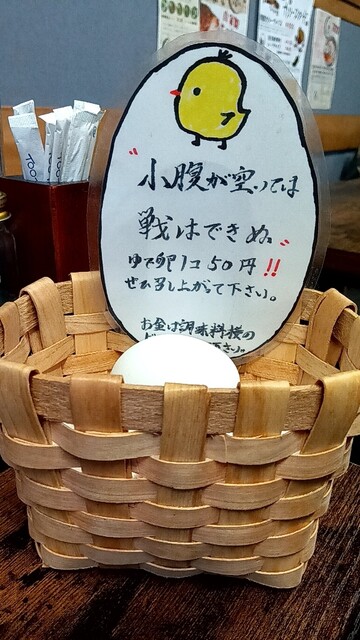 〝小腹が空いては
戦はできぬ〟
ゆで卵1コ50円!!
ぜひ召し上がって下さい。
お金は調味料横の
下さい。